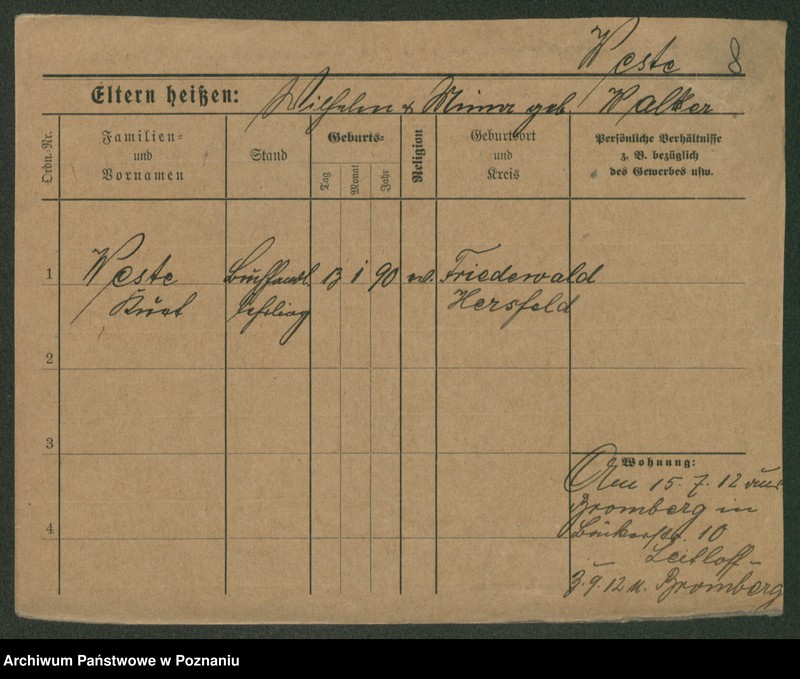 Weste 8
Eltern heißen: Wilhelm & Minna geb. Walker
Ordn.-Nr.
Familien-
und
Vornamen
Stand
Geburts-
Tag
Monat
Jahr
Religion
Geburtsort
und
Kreis
Persönliche Verhältnisse
z. B. bezüglich
des Gewerbes usw.
1 Weste Buchhandl. 13 1 90 ev. Friedewald
Kurt Lehrling Hersfeld
2
3
Wohnung:
Am 15. 7. 12 aus
Bromberg in
10
4
Leitloff
3. 9. 12 n. Bromberg
Archiwum Państwowe w Poznaniu